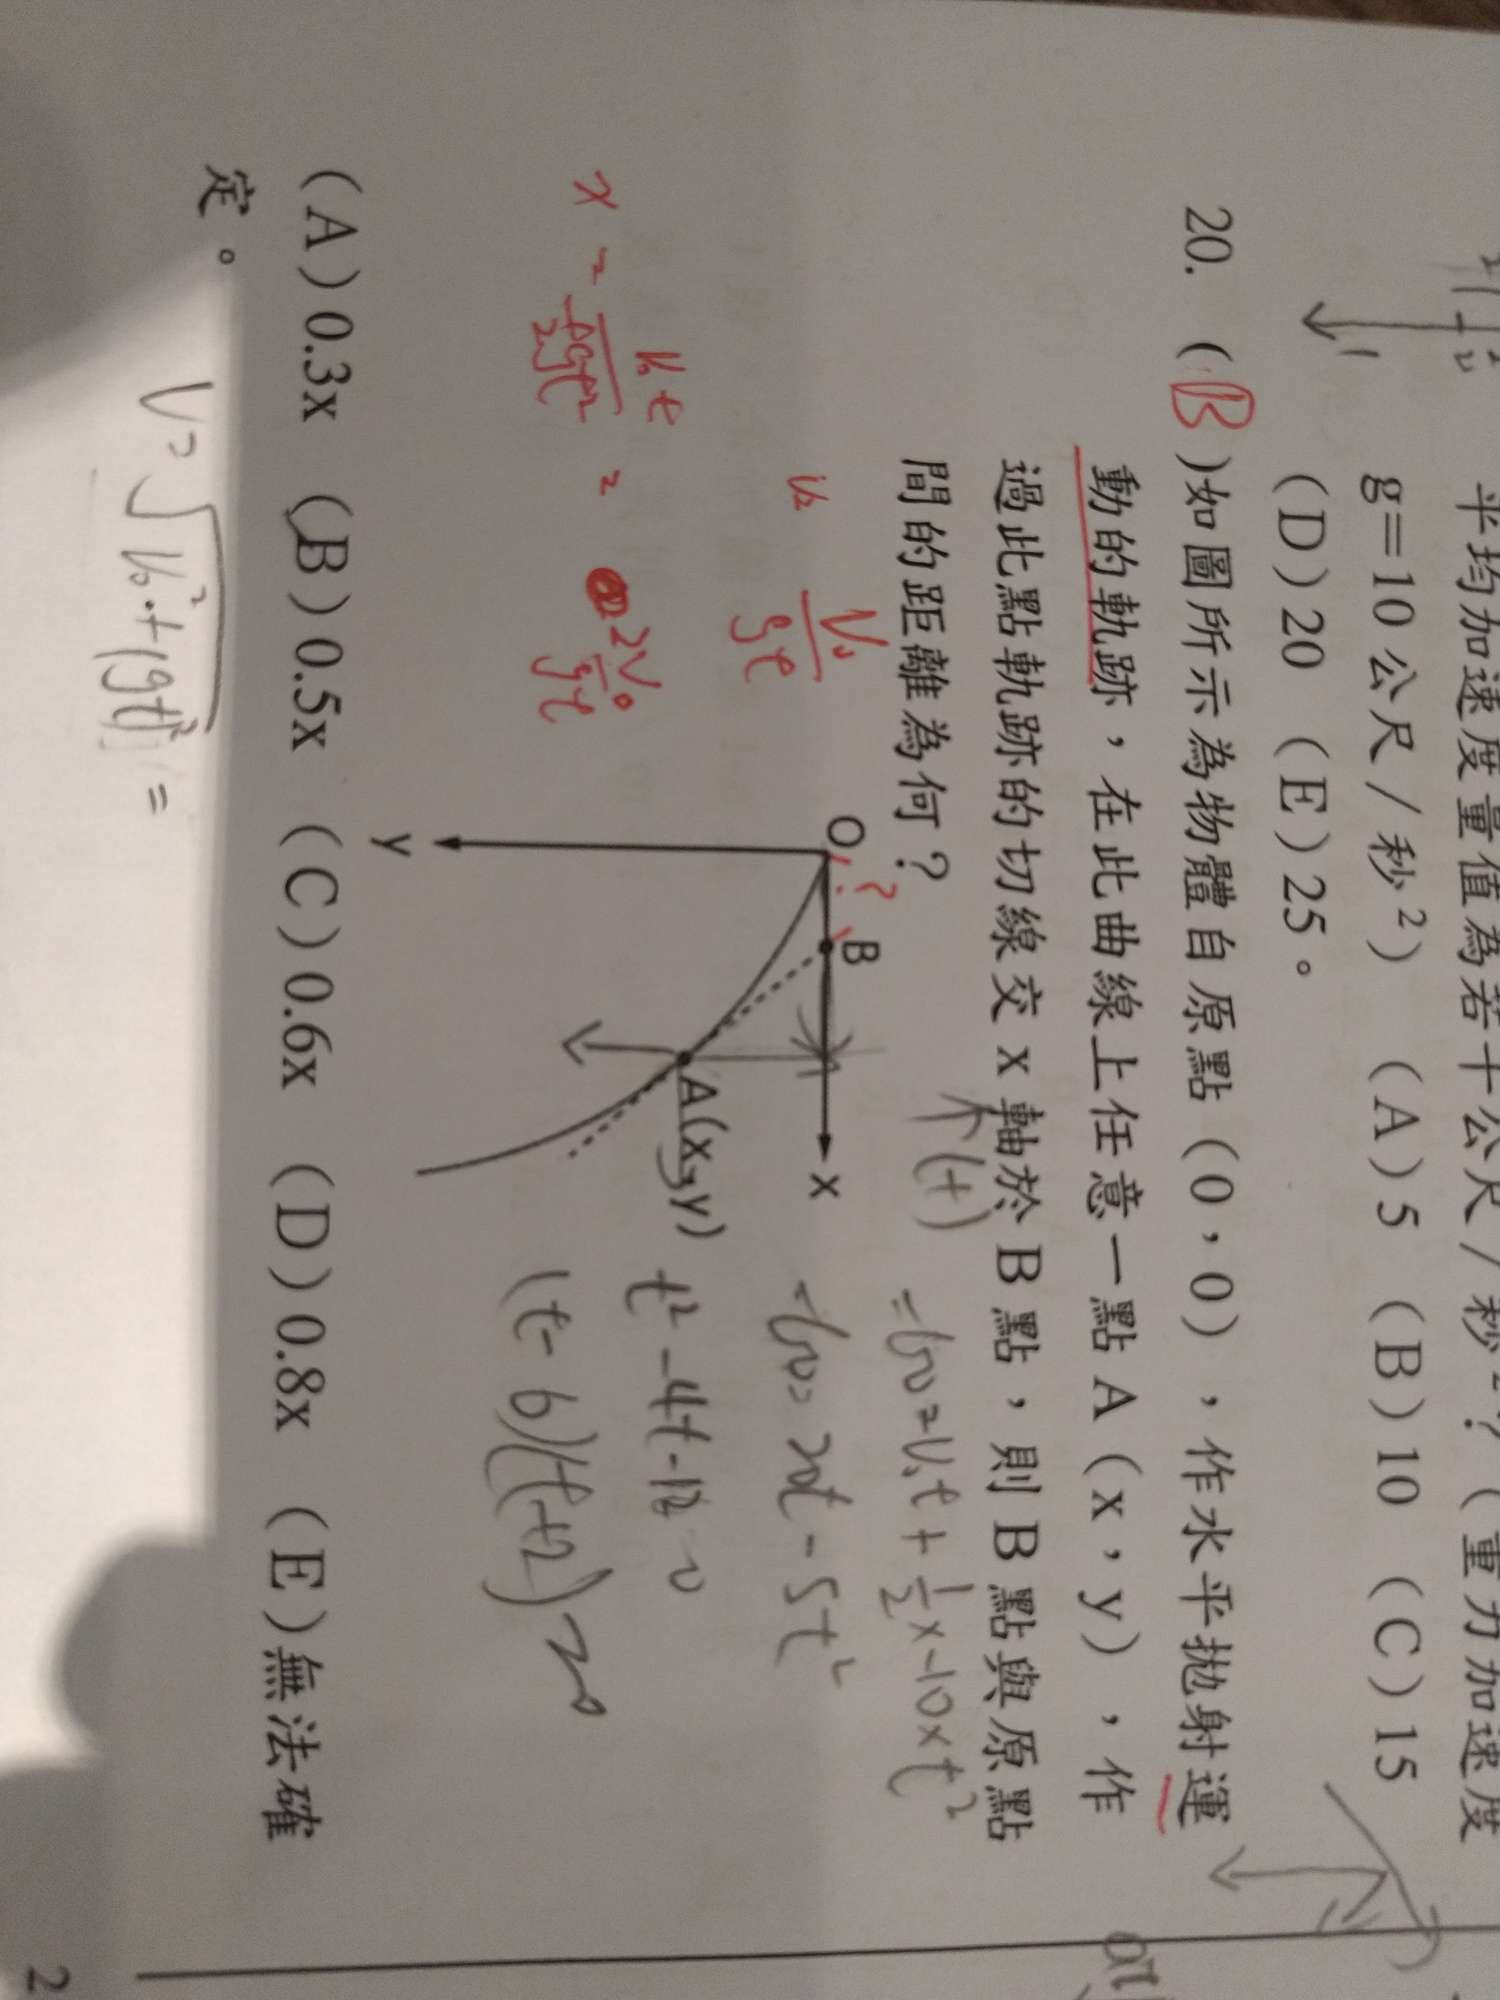 平均加速度量值為若干公尺/秒²?(重力加速度
g=10公尺/秒²) (A)5 (B)10 (C)15
(D)20 (E)25。
20. (B)如圖所示為物體自原點(0,0),作水平拋射運
動的軌跡,在此曲線上任意一點A(x,y),作
過此點軌跡的切線交x軸於B點,則B點與原點
間的距離為何?
O ? B x
A(x,y)
y
(t)
V₀/gt
x = V₀t/½gt² = 2V₀/gt
-60=V₀t+½x-10xt²
-60=20t-5t²
t²-4t-12=0
(t-6)(t+2)=0
(A)0.3x (B)0.5x (C)0.6x (D)0.8x (E)無法確
定。
V=√V₀²+(gt)² =
2